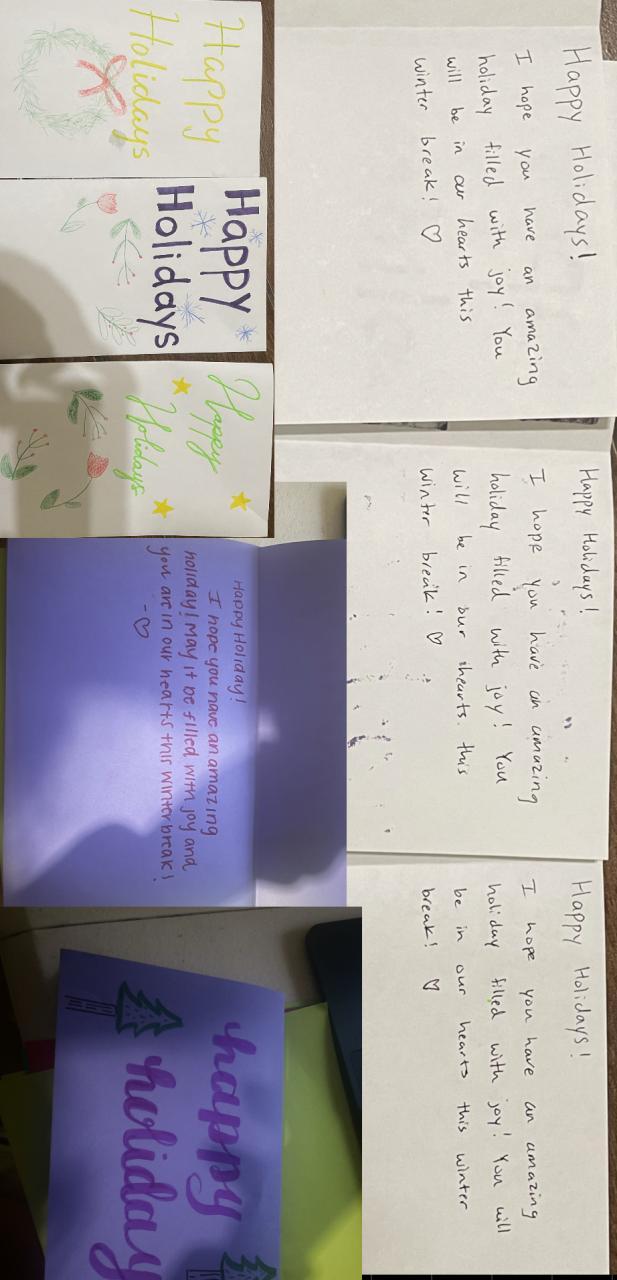 Happy
Holidays
Happy
Holidays
Happy
Holidays
Happy Holidays!
I hope you have an amazing
holiday filled with joy! You
will be in our hearts this
winter break! ♡
Happy Holidays!
I hope you have an amazing
holiday filled with joy! You
will be in our hearts this
winter break! ♡
Happy Holidays!
I hope you have an amazing
holiday filled with joy! You will
be in our hearts this winter
break! ♡
Happy Holiday!
I hope you have an amazing
holiday! May it be filled with joy and
you are in our hearts this winter break!
-♡
happy
holiday